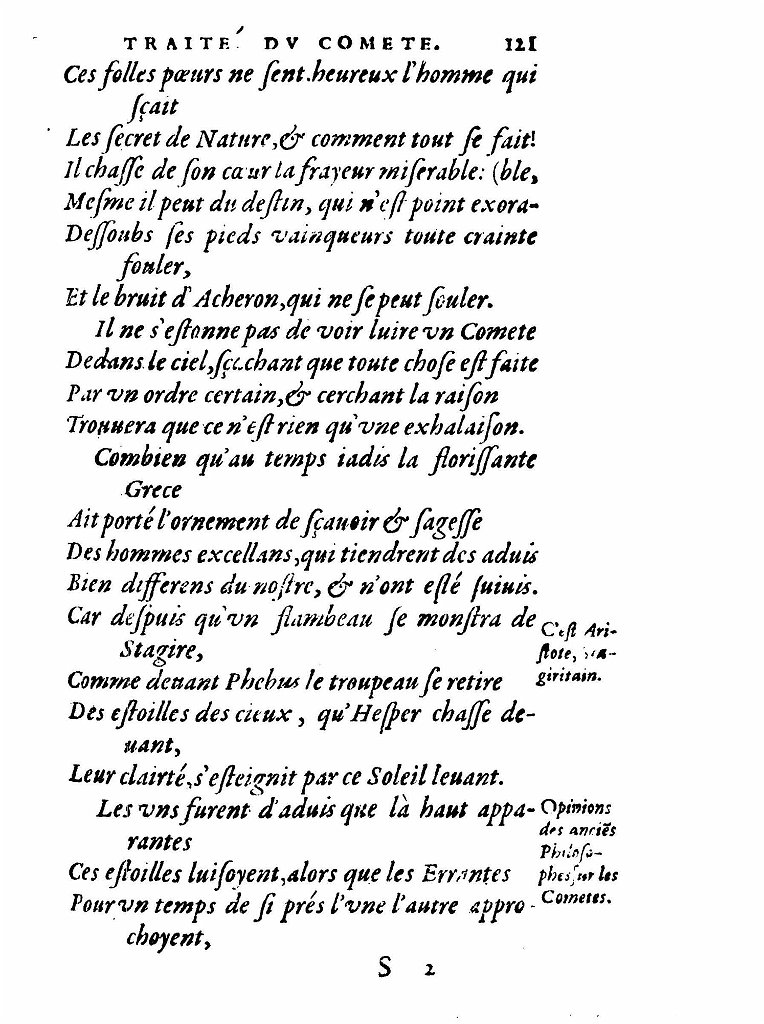 TRAITE' DV COMETE. 121
Ces folles pœurs ne ſent.heureux l'homme qui
ſçait
Les ſecret de Nature,& comment tout ſe fait!
Il chaſſe de ſon cœur la frayeur miſerable: (ble,
Meſme il peut du deſtin, qui n'eſt point exora-
Deſſoubs ſes pieds vainqueurs toute crainte
fouler,
Et le bruit d'Acheron,qui ne ſe peut ſouler.
Il ne s'eſtonne pas de voir luire vn Comete
Dedans le ciel,ſçachant que toute choſe eſt faite
Par vn ordre certain,& cerchant la raiſon
Trouuera que ce n'eſt rien qu'vne exhalaiſon.
Combien qu'au temps iadis la floriſſante
Grece
Ait porté l'ornement de ſçauoir & ſageſſe
Des hommes excellans,qui tiendrent des aduis
Bien differens du noſtre, & n'ont eſté ſuiuis.
Car deſpuis qu'vn flambeau ſe monſtra de
Stagire,
C'eſt Ari-
ſtote, Sta-
giritain.
Comme deuant Phebus le troupeau ſe retire
Des eſtoilles des cieux, qu'Heſper chaſſe de-
uant,
Leur clairté,s'eſteignit par ce Soleil leuant.
Les vns furent d'aduis que là haut appa-
rantes
Opinions
des anciẽs
Philoſo-
phes ſur les
Cometes.
Ces eſtoilles luiſoyent,alors que les Errantes
Pour vn temps de ſi prés l'vne l'autre appro-
choyent,
S 2